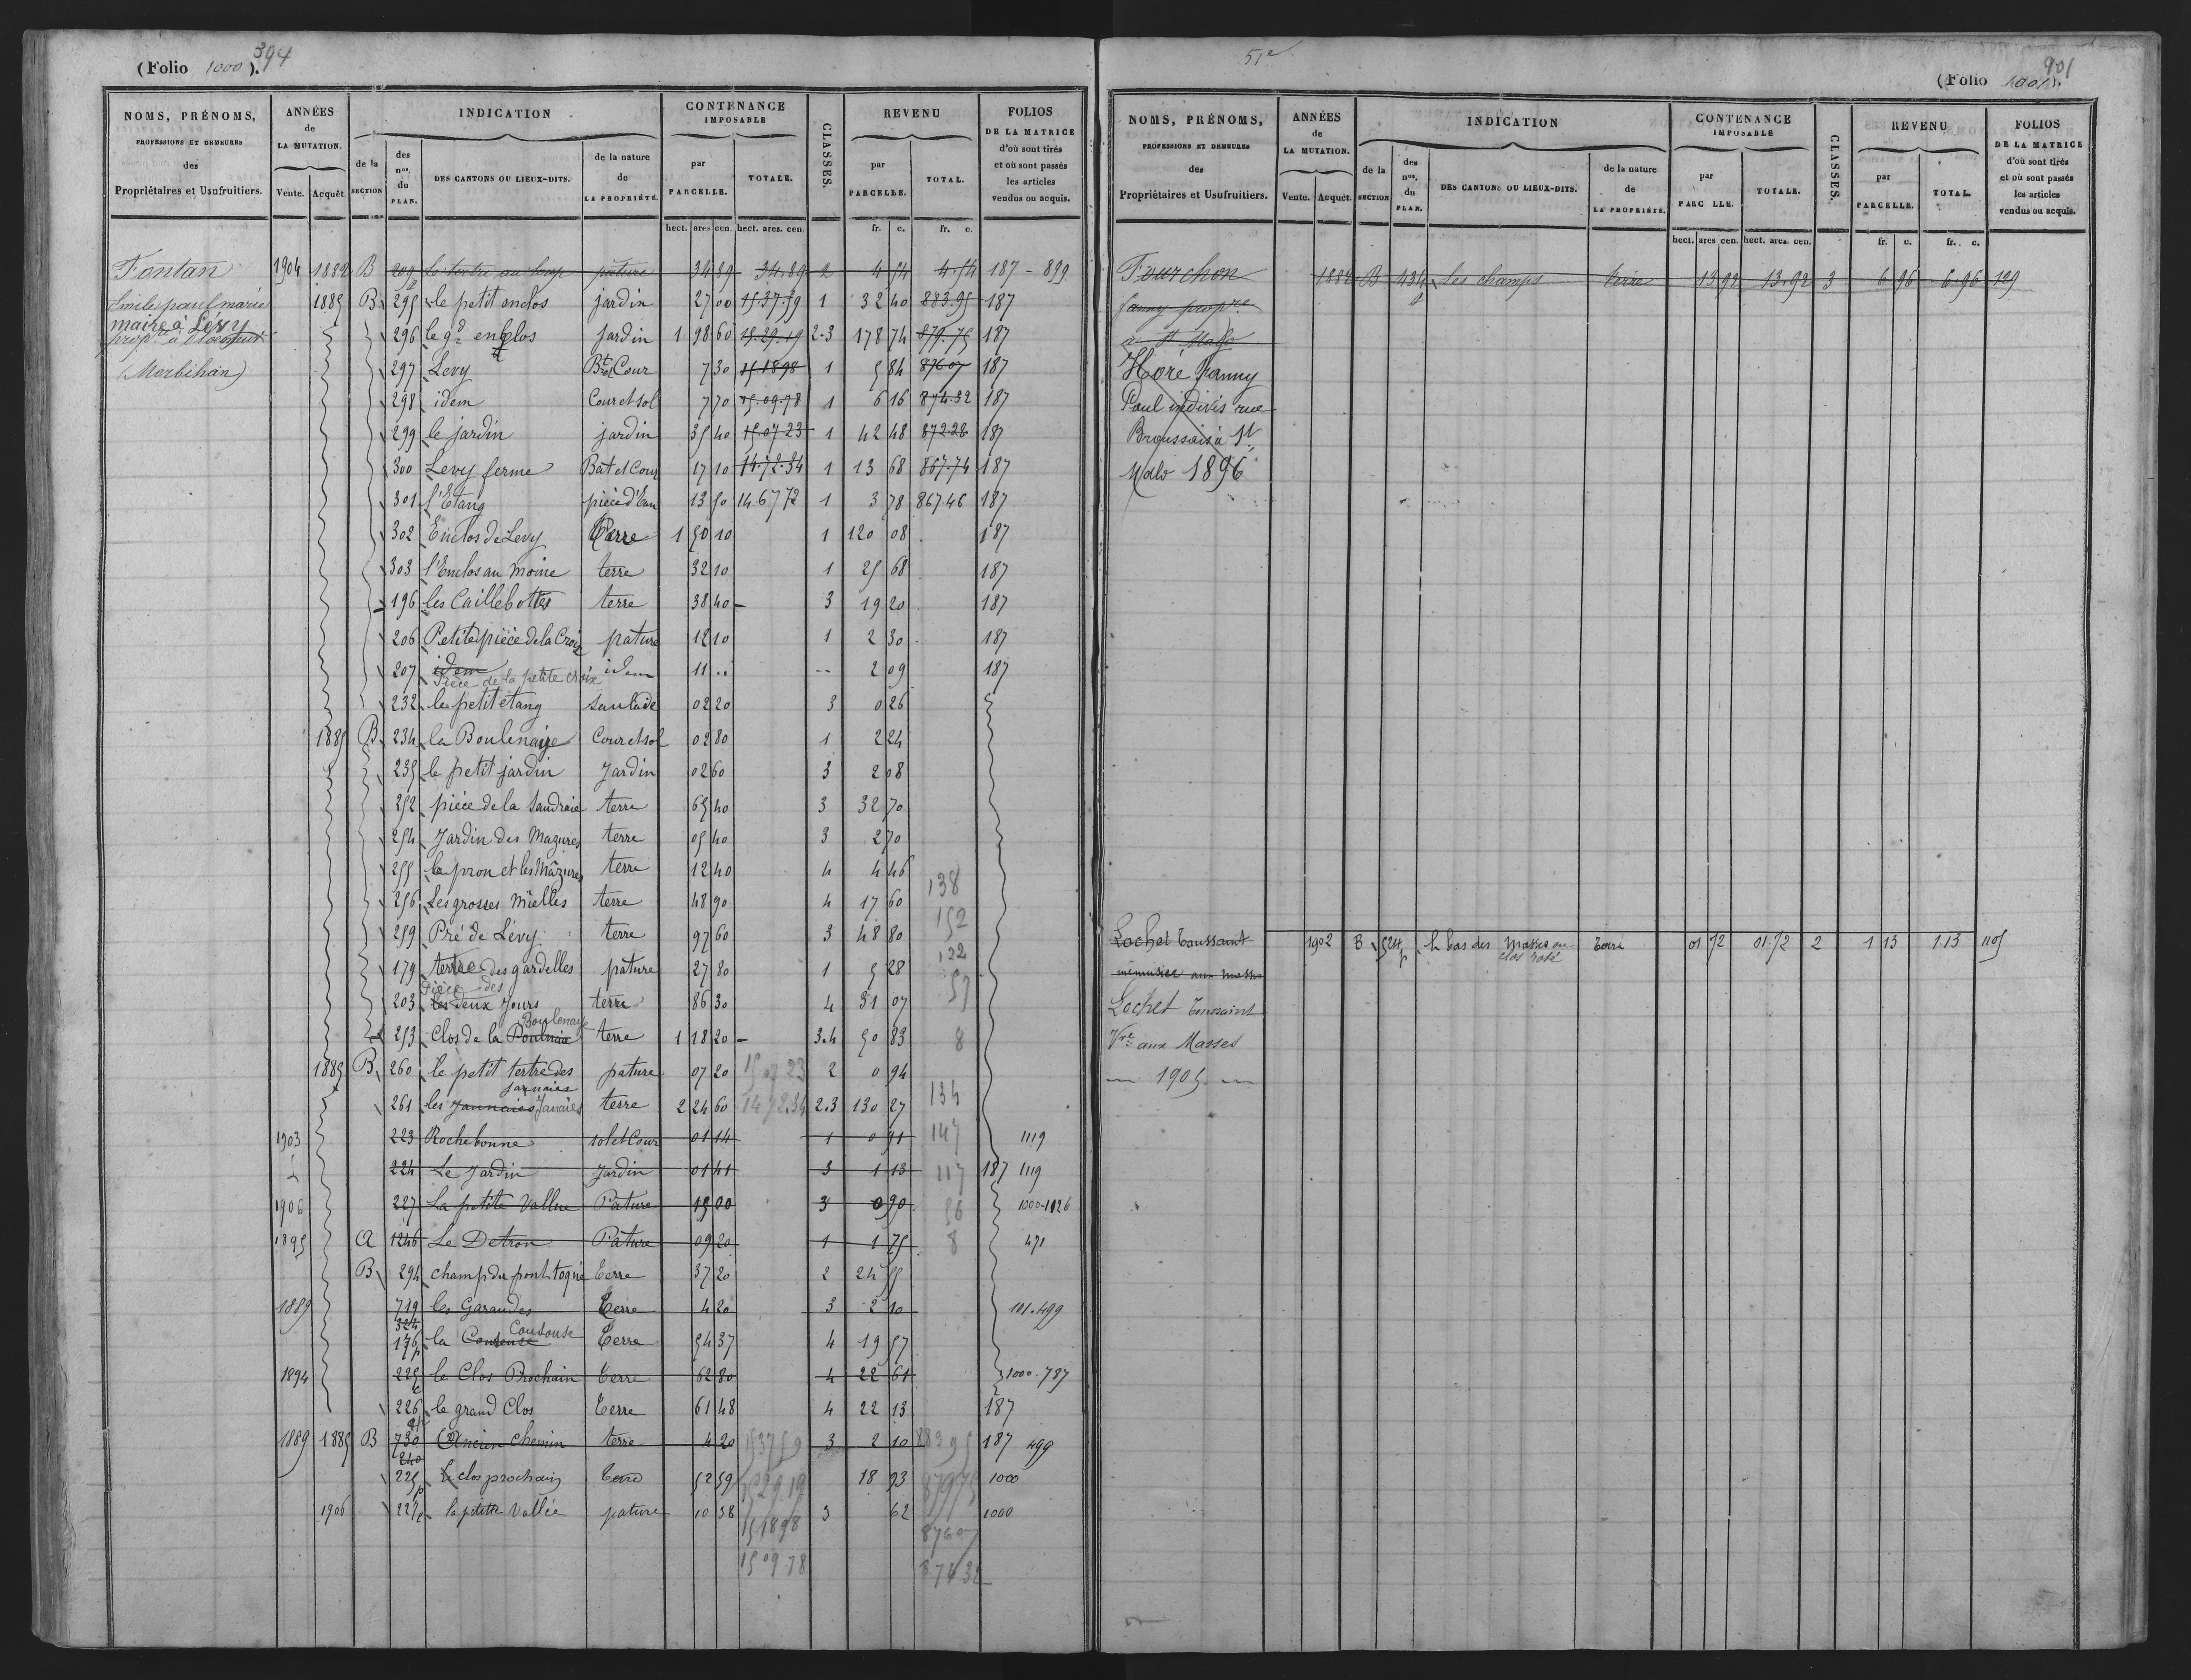 (Folio 1000). 394
NOMS, PRÉNOMS,
PROFESSIONS ET DEMEURES
des
Propriétaires et Usufruitiers.
ANNÉES
de
LA MUTATION.
Vente. Acquêt.
INDICATION
de la
SECTION
des
nos.
du
PLAN.
DES CANTONS OU LIEUX-DITS.
de la nature
de
LA PROPRIÉTÉ.
CONTENANCE
IMPOSABLE
par
PARCELLE.
TOTALE.
CLASSES.
REVENU
par
PARCELLE.
TOTAL.
FOLIOS
DE LA MATRICE
d'où sont tirés
et où sont passés
les articles
vendus ou acquis.
hect. ares cen. hect. ares. cen. fr. c. fr. c.
Fontan
Emile paul marie
maire à Lévy
prop.re à
(Morbihan)
1904 1882 B 209 le tertre au loup pature 34 89 34.89 2 4 54 4.54 187 - 899
1885 B 295 le petit enclos jardin 27 00 15.37.59 1 32 40 883.95 187
296 le gd enclos jardin 1 98 60 15.29.19 2.3 178 74 879.75 187
297 Levy Bt et Cour 7 30 15 18 98 1 5 84 876 07 187
298 idem Cour et sol 7 70 15.09.78 1 6 16 874.32 187
299 le jardin jardin 35 40 15.07 23 1 42 48 872.28 187
300 Levy ferme Bat et Cour 17 10 14.72.34 1 13 68 867.74 187
301 l'Etang pièce d'Eau 13 50 14 67 72 1 3 78 867.46 187
302 Enclos de Levy Terre 1 50 10 1 120 08 187
303 l'Enclos au Moine terre 32 10 1 25 68 187
196 les Caillebottes terre 38 40 3 19 20 187
206 Petite pièce de la Croix pature 12 10 1 2 30 187
207 idem Pièce de la petite croix idem 11 .. -- 2 09 187
232 le petit étang saulaie 02 20 3 0 26
1885 B 234 la Boulenaye Cour et sol 02 80 1 2 24
235 le petit jardin Jardin 02 60 3 2 08
252 pièce de la Saudraie terre 65 40 3 32 70
254 Jardin des Mazures terre 05 40 3 2 70
255 le pron et les Mazures terre 12 40 4 4 46
138
256 Les grosses Mielles terre 48 90 4 17 60
152
259 Pré de Lévy terre 97 60 3 48 80
122
179 tertre des gardelles pature 27 80 1 5 28
57
203 Pièce des deux Jours terre 86 30 4 31 07
253 Clos de la Boulenaye terre 1 18 20 3.4 50 83 8
1885 B 260 le petit tertre des Jannaies pature 07 20 15 07 23 2 0 94
261 les Jannaies Janaies terre 2 24 60 14 72.34 2.3 130 27 134
1903 223 Rochebonne sol et Cour 01 14 1 0 91 147 1119
224 Le Jardin Jardin 01 41 3 1 13 117 187 1119
1906 227 La petite Vallee Pature 15 00 3 0 90 56 1000-1126
1895 A 1246 Le Detron Pature 09 20 1 1 75 8 471
B 294 champ du pont togné Terre 37 20 2 24 55
1889 719 les Garandes Terre 4 20 3 2 10 101.499
324
176 p la Coutouse Terre 54 37 4 19 57
1894 225 le Clos Prochain Terre 62 80 4 22 61 1000.787
226 le grand Clos Terre 61 48 4 22 13 187
1889 1885 B 730 Ancien chemin terre 4 20 15 37 59 3 2 10 883 95 187 499
240
225 p le clos prochain Terre 52 59 15 29 19 18 93 879 75 1000
1906 227 p la petite Vallée pature 10 38 15 18 98 3 62 876 07 1000
15 09 78 874 32
51e
(Folio 1001). 901
NOMS, PRÉNOMS,
PROFESSIONS ET DEMEURES
des
Propriétaires et Usufruitiers.
ANNÉES
de
LA MUTATION.
Vente. Acquêt.
INDICATION
de la
SECTION
des
nos.
du
PLAN.
DES CANTONS OU LIEUX-DITS.
de la nature
de
LA PROPRIÉTÉ.
CONTENANCE
IMPOSABLE
par
PARC LLE.
TOTALE.
CLASSES.
REVENU
par
PARCELLE.
TOTAL.
FOLIOS
DE LA MATRICE
d'où sont tirés
et où sont passés
les articles
vendus ou acquis.
hect. ares cen. hect. ares. cen. fr. c. fr. c.
Fourchon 1882 B 434 p Les champs terre 13 92 13.92 3 6 96 6.96 129
fanny prop.re
à St Malo
Horé fanny
Paul indivis rue
Broussais à St
Malo 1896
Lochet Toussaint 1902 B 524 p le bas des Masses ou clos rosé Terre 01 72 01.72 2 1 13 1.13 1105
menuisier aux masses
Lochet Toussaint
Vve aux Masses
— 1905 —